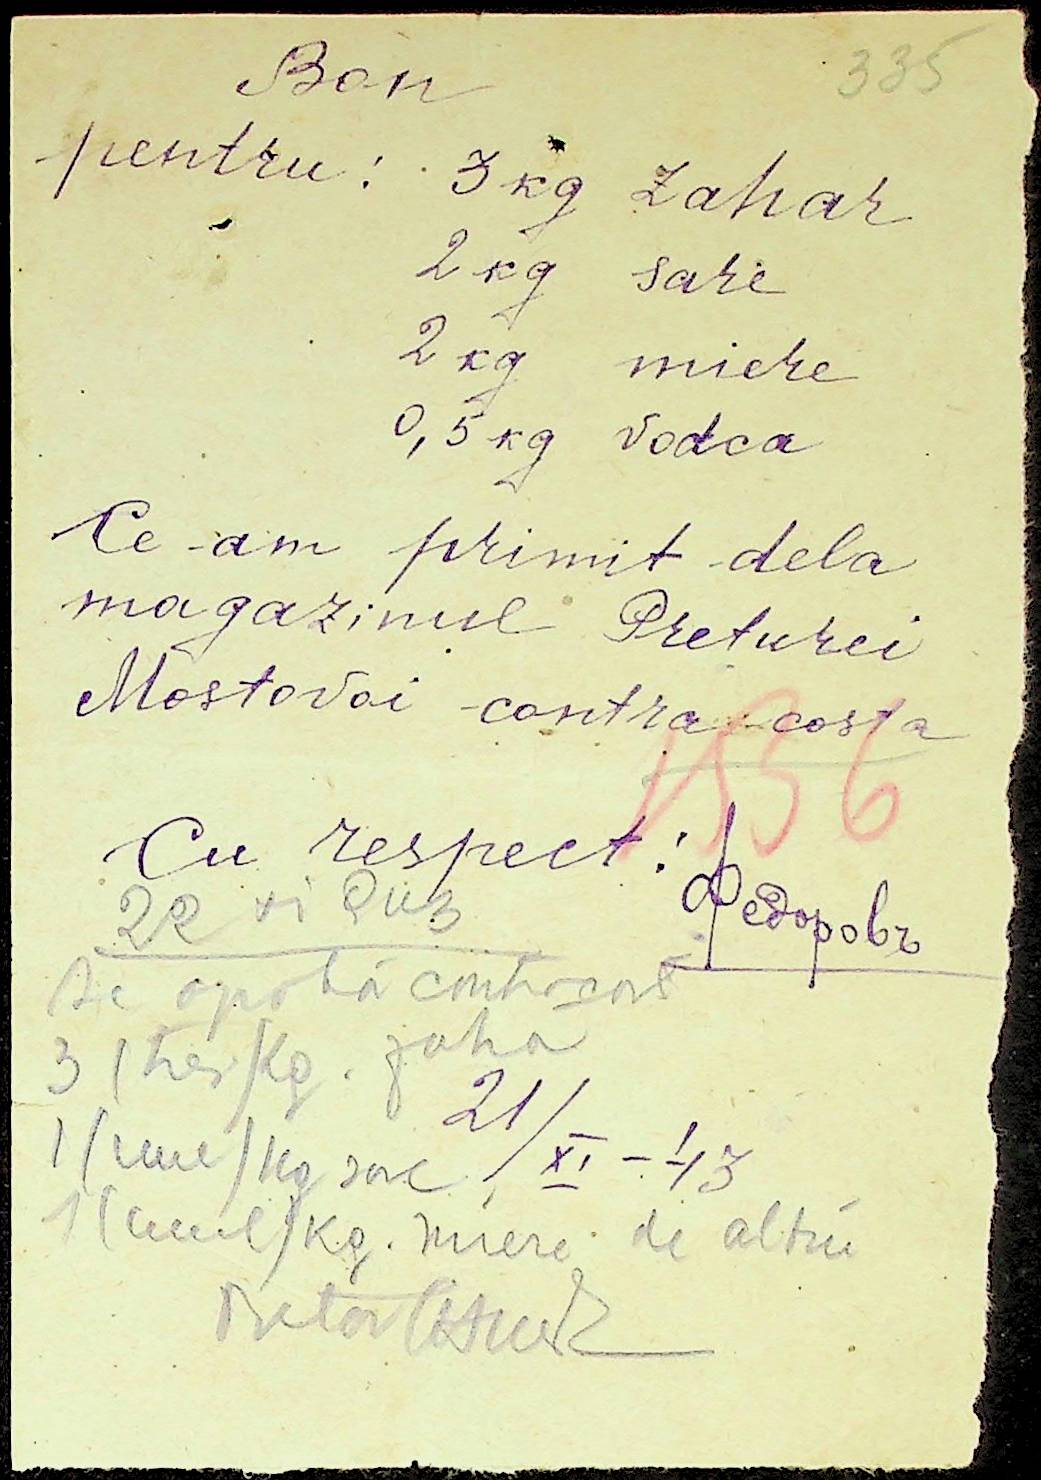 335
Bon
pentru: 3 kg zahar
2 kg sare
2 kg miere
0,5 kg vodca
Ce am primit dela
magazinul Preturei
Mostovoi contra cost
156
Cu respect:
Федоровъ
22 XI
Se aprobă contra cost
3 (trei) Kg. zahar
21/XI-43
1 (unul) Kg sare
1 (unul) Kg. miere de
Pretor